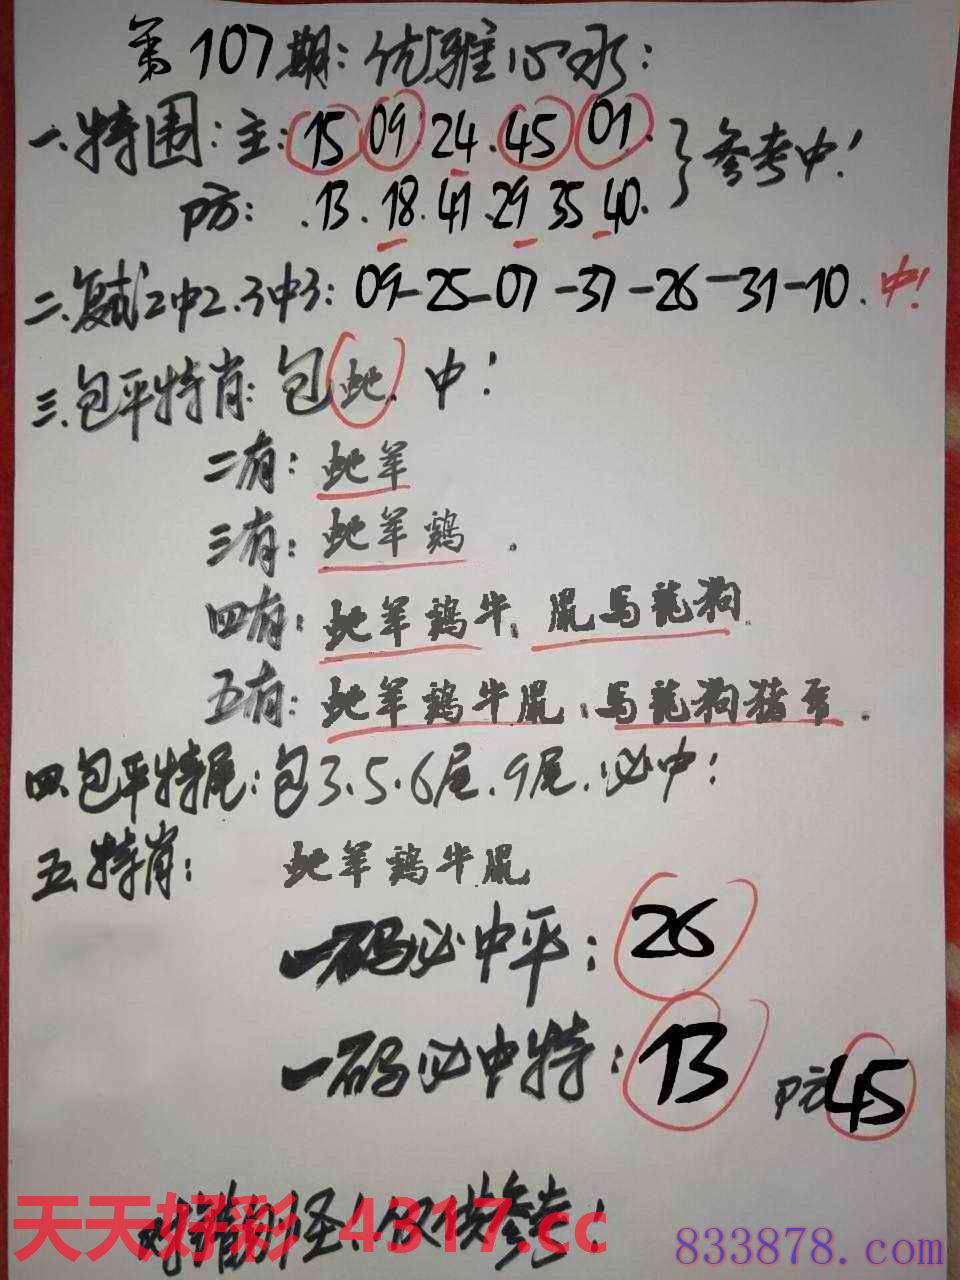 第107期:优雅心水:
一.特围:主:15 09 24.45 01.
防:.13.18.41.29 35 40.
参考中!
二.复式2中2.3中3:09-25-07-37-26-31-10.中!
三.包平特肖:包蛇.中!
二有:蛇羊
三有:蛇羊鷄.
四有:蛇羊鷄牛、鼠馬龍狗.
五有:蛇羊鷄牛鼠;馬龍狗猪.
四.包平特尾:包3.5.6尾.9尾.必中:
五.特肖:蛇羊鷄牛鼠
一码必中平:26
一码必中特:13 防45
对错勿怪!仅供参考!
天天好彩 4317.cc
833878.com